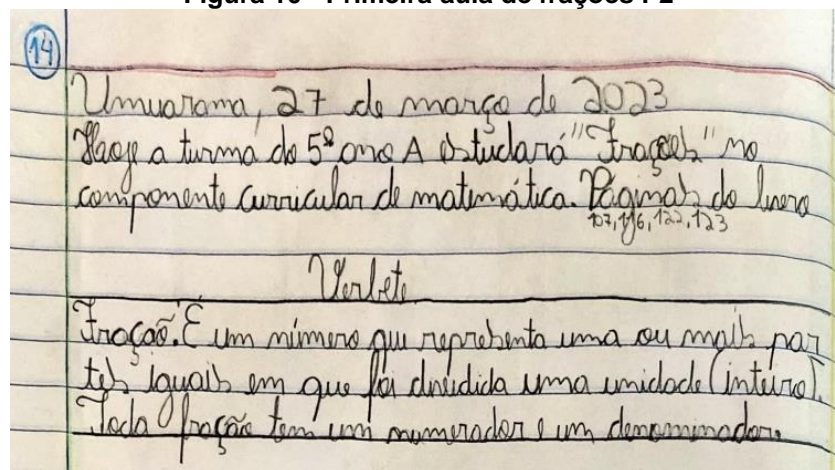 Figura 10 - Primeira aula de frações P2
14
Umuarama, 27 de março de 2023
Hoje a turma do 5º ano A estudará "Frações" no
componente curricular de matemática. Páginas do livro
107, 116, 122, 123
Verbete
Fração: É um número que representa uma ou mais par
tes iguais em que foi dividida uma unidade (inteiro).
Toda fração tem um numerador e um denominador.